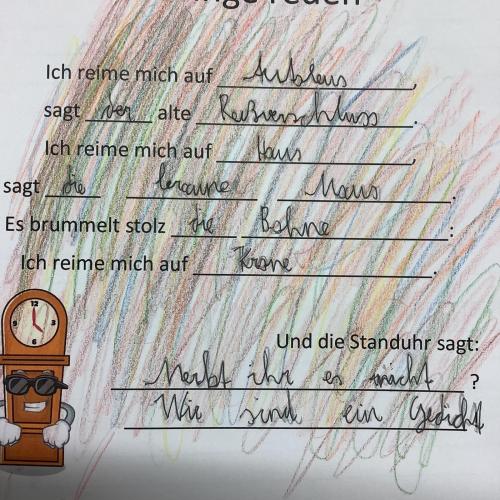 inge reden
Ich reime mich auf Autobus,
sagt der alte Reißverschluss.
Ich reime mich auf Haus,
sagt die braune Maus.
Es brummelt stolz die Bohne:
Ich reime mich auf Krone.
12
9 3
6
Und die Standuhr sagt:
Merkt ihr es nicht ?
Wir sind ein Gedicht